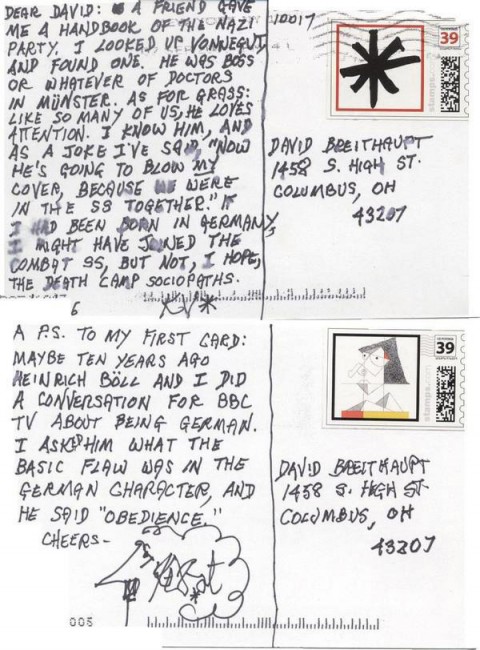 DEAR DAVID: A FRIEND GAVE
ME A HANDBOOK OF THE NAZI
PARTY. I LOOKED UP VONNEGUT,
AND FOUND ONE. HE WAS BOSS
OR WHATEVER OF DOCTORS
IN MÜNSTER. AS FOR GRASS:
LIKE SO MANY OF US, HE LOVES
ATTENTION. I KNOW HIM, AND
AS A JOKE I'VE SAID, "NOW
HE'S GOING TO BLOW MY
COVER, BECAUSE WE WERE
IN THE SS TOGETHER." IF
I HAD BEEN BORN IN GERMANY,
I MIGHT HAVE JOINED THE
COMBAT SS, BUT NOT, I HOPE,
THE DEATH CAMP SOCIOPATHS.
KV*
6
10017
39
stamps.com
DAVID BREITHAUPT
1458 S. HIGH ST.
COLUMBUS, OH
43207
A P.S. TO MY FIRST CARD:
MAYBE TEN YEARS AGO
HEINRICH BÖLL AND I DID
A CONVERSATION FOR BBC
TV ABOUT BEING GERMAN.
I ASKED HIM WHAT THE
BASIC FLAW WAS IN THE
GERMAN CHARACTER, AND
HE SAID "OBEDIENCE."
CHEERS-
005
39
stamps.com
DAVID BREITHAUPT
1458 S. HIGH ST.
COLUMBUS, OH
43207